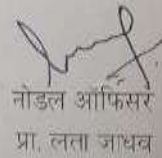 नोडल ऑफिसर
प्रा. लता जाधव